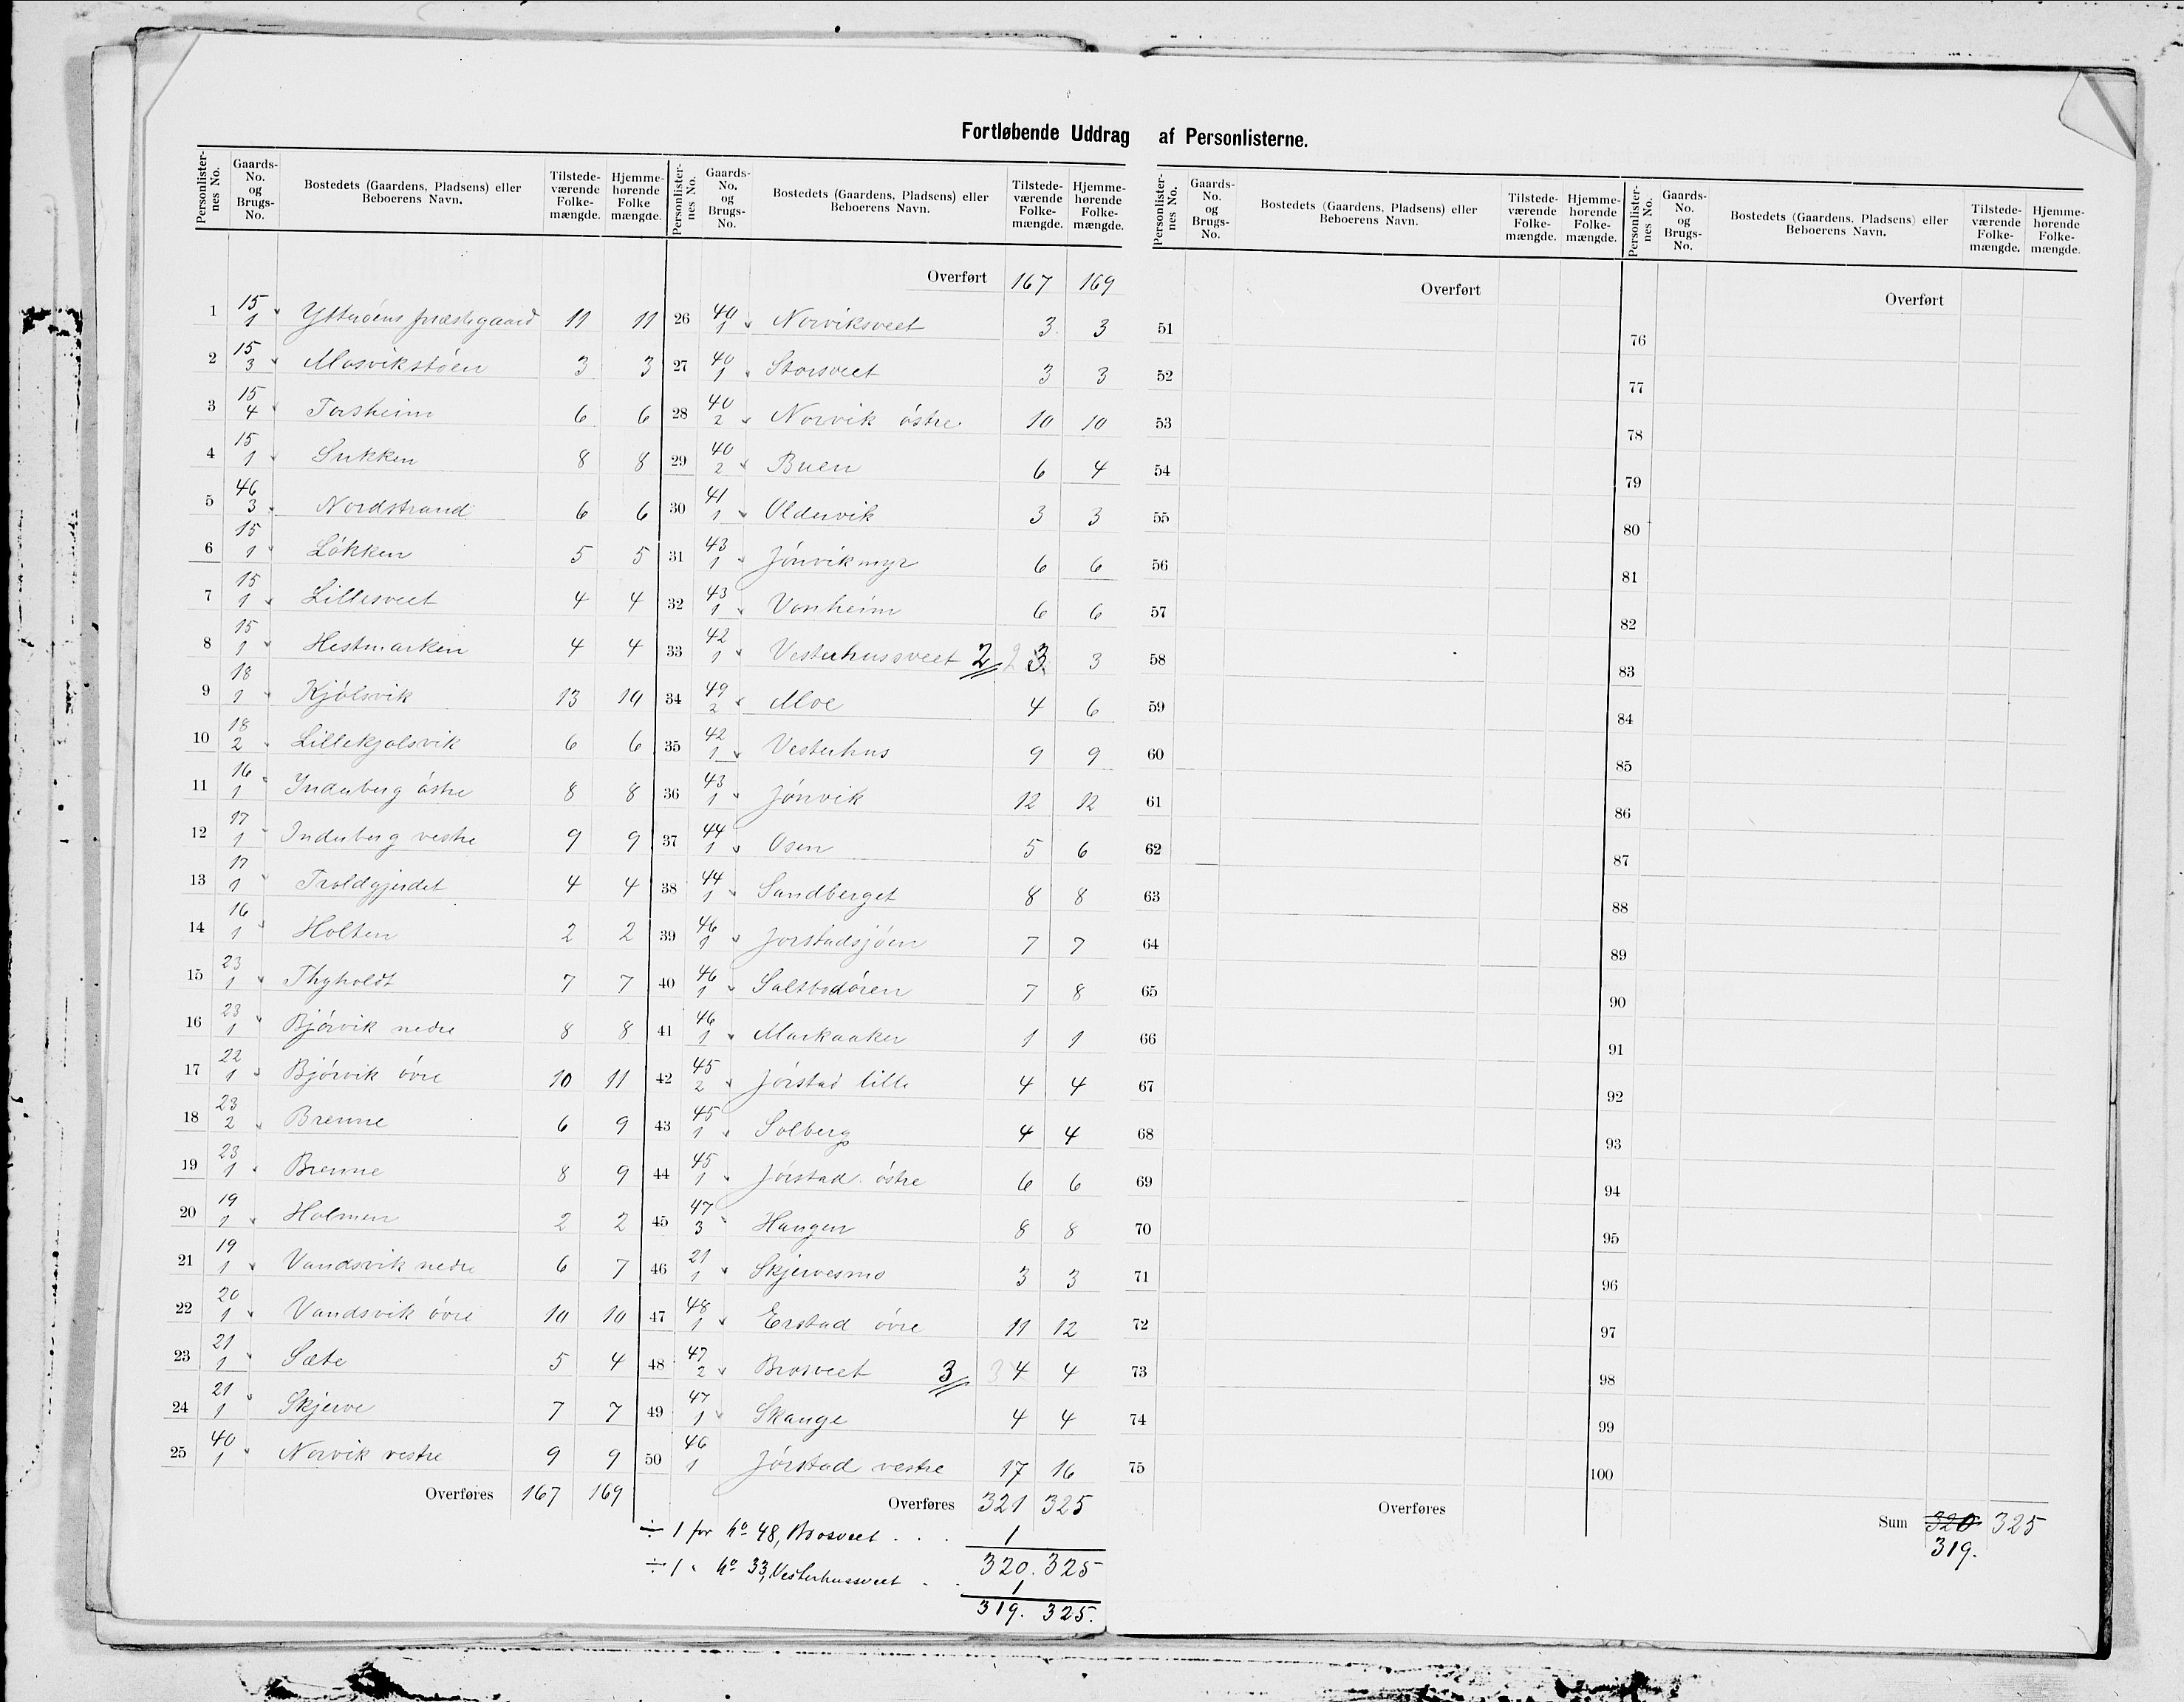 Fortløbende Uddrag af Personlisterne.
Personlisternes No. Gaards-No. og Brugs-No. Bostedets (Gaardens, Pladsens) eller Beboerens Navn. Tilstedeværende Folkemængde. Hjemmehørende Folkemængde.
1 15/1 Ytterøens præstegaard 11 11
2 15/3 Mosvikstøen 3 3
3 15/4 Torsheim 6 6
4 15/1 Sukken 8 8
5 46/3 Nordstrand 6 6
6 15/1 Løkken 5 5
7 15/1 Lillesveet 4 4
8 15/1 Hestmarken 4 4
9 18/1 Kjølsvik 13 10
10 18/2 Lillekjølsvik 6 6
11 16/1 Inderberg østre 8 8
12 17/1 Inderberg vestre 9 9
13 17/1 Troldgjerdet 4 4
14 16/1 Holten 2 2
15 23/1 Thyholdt 7 7
16 23/1 Bjørvik nedre 8 8
17 22/1 Bjørvik øvre 10 11
18 23/2 Brenne 6 9
19 23/1 Brenne 8 9
20 19/1 Holmen 2 2
21 19/1 Vandsvik nedre 6 7
22 20/1 Vandsvik øvre 10 10
23 21/1 Sæte 5 4
24 21/1 Skjerve 7 7
25 40/1 Norvik vestre 9 9
Overføres 167 169
Personlisternes No. Gaards-No. og Brugs-No. Bostedets (Gaardens, Pladsens) eller Beboerens Navn. Tilstedeværende Folkemængde. Hjemmehørende Folkemængde.
Overført 167 169
26 40/1 Norviksveet 3 3
27 40/1 Storsveet 3 3
28 40/2 Norvik østre 10 10
29 40/2 Buen 6 4
30 41/1 Oldervik 3 3
31 43/1 Jønvikmyr 6 6
32 43/1 Vonheim 6 6
33 42/1 Vesterhussveet 2 2 3 3
34 49/2 Moe 4 6
35 42/1 Vesterhus 9 9
36 43/1 Jønvik 12 12
37 44/1 Osen 5 6
38 44/1 Sandberget 8 8
39 46/1 Jørstadsjøen 7 7
40 46/1 Saltbodøren 7 8
41 46/1 Markaaker 1 1
42 45/2 Jørstad lille 4 4
43 45/1 Solberg 4 4
44 45/1 Jørstad østre 6 6
45 47/3 Haugen 8 8
46 21/1 Skjervesmo 3 3
47 48/1 Erstad øvre 11 12
48 47/2 Brosveet 3 3 4 4
49 47/1 Skange 4 4
50 46/1 Jørstad vestre 17 16
Overføres 321 325
÷ 1 for No 48, Brosveet . . . 1
320. 325
÷ 1 " No 33, Vesterhussveet . . 1
319. 325.
Personlisternes No. Gaards-No. og Brugs-No. Bostedets (Gaardens, Pladsens) eller Beboerens Navn. Tilstedeværende Folkemængde. Hjemmehørende Folkemængde.
Overført
51
52
53
54
55
56
57
58
59
60
61
62
63
64
65
66
67
68
69
70
71
72
73
74
75
Overføres
Personlisternes No. Gaards-No. og Brugs-No. Bostedets (Gaardens, Pladsens) eller Beboerens Navn. Tilstedeværende Folkemængde. Hjemmehørende Folkemængde.
Overført
76
77
78
79
80
81
82
83
84
85
86
87
88
89
90
91
92
93
94
95
96
97
98
99
100
Sum 320 325
319.